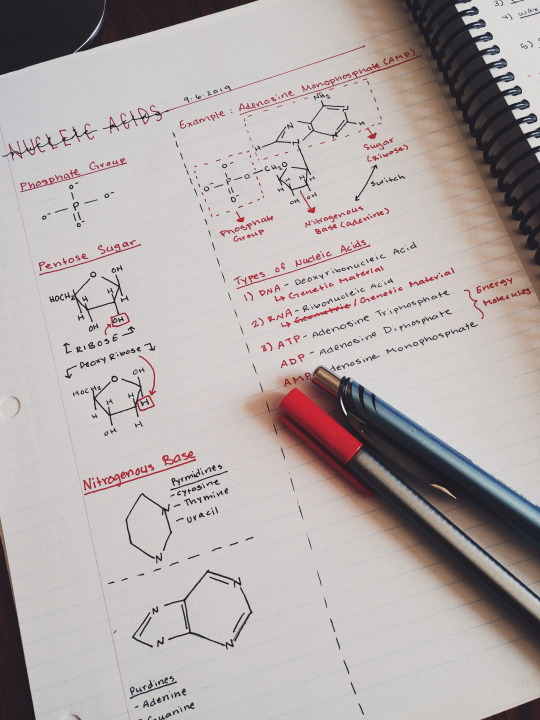 NUCLEIC ACIDS
9.6.2019
Phosphate Group
O⁻
O⁻ — P — O⁻
O⁻
Pentose Sugar
OH
O
HOCH₂
H H
H
OH OH
[RIBOSE]
Deoxy Ribose
OH
O
HOCH₂
H H
H H
OH H
Nitrogenous Base
Pyrmidines
- Cytosine
- Thymine
- Uracil
N
N
N N
N N
Purdines
- Adenine
- Guanine
Example: Adenosine Monophosphate (AMP)
NH₂
N N
N N
H H
O⁻
O⁻ — P — O — CH₂ O
O⁻
H H
OH OH
Sugar
(Ribose)
switch
Phosphate
Group
Nitrogenous
Base (adenine)
Types of Nucleic Acids
1) DNA - Deoxyribonucleic Acid
↳ Genetic Material
2) RNA - Ribonucleic Acid
↳ Geometric / Genetic Material
3) ATP - Adenosine Triphosphate
ADP - Adenosine Diphosphate
AMP Adenosine Monophosphate
Energy
Molecules
3)
4) wax
5)